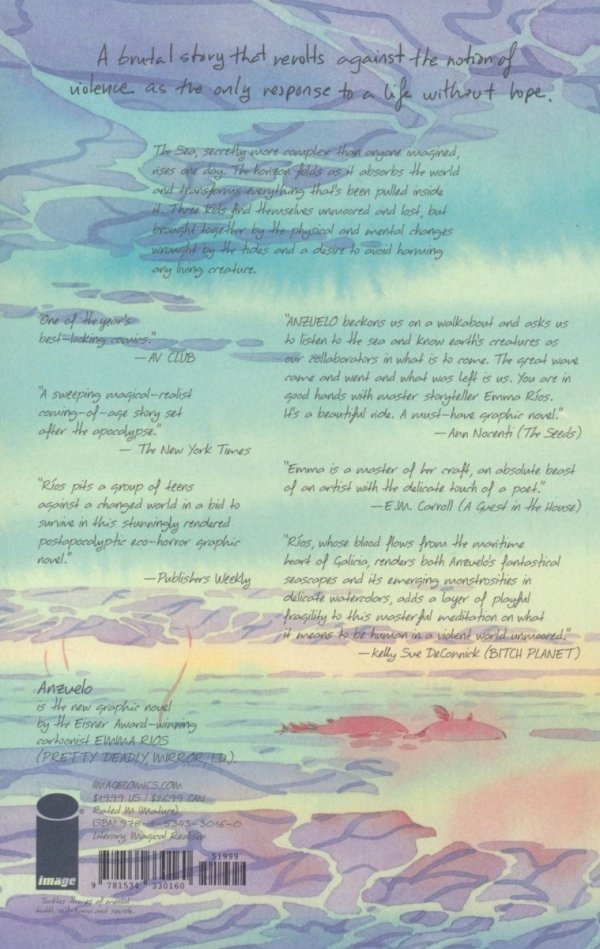 A brutal story that revolts against the notion of
violence as the only response to a life without hope.
The Sea, secretly more complex than anyone imagined,
rises one day. The horizon folds as it absorbs the world
and transforms everything that's been pulled inside
it. Three kids find themselves unmoored and lost, but
brought together by the physical and mental changes
wrought by the tides and a desire to avoid harming
any living creature.
"One of the year's
best-looking comics."
— AV CLUB
"A sweeping magical-realist
coming-of-age story set
after the apocalypse."
— The New York Times
"Ríos pits a group of teens
against a changed world in a bid to
survive in this stunningly rendered
postapocalyptic eco-horror graphic
novel."
—Publishers Weekly
"ANZUELO beckons us on a walkabout and asks us
to listen to the sea and know earth's creatures as
our collaborators in what is to come. The great wave
came and went and what was left is us. You are in
good hands with master storyteller Emma Ríos.
It's a beautiful ride. A must-have graphic novel."
—Ann Nocenti (The Seeds)
"Emma is a master of her craft, an absolute beast
of an artist with the delicate touch of a poet."
—E.M. Carroll (A Guest in the House)
"Ríos, whose blood flows from the maritime
heart of Galicia, renders both Anzuelo's fantastical
seascapes and its emerging monstrosities in
delicate watercolors, adds a layer of playful
fragility to this masterful meditation on what
it means to be human in a violent world unmoored."
—Kelly Sue DeConnick (BITCH PLANET)
Anzuelo
is the new graphic novel
by the Eisner Award-winning
cartoonist EMMA RIOS
(PRETTY DEADLY, MIRROR, I.D.).
IMAGECOMICS.COM
$19.99 US / $26.99 CAN
Rated M (Mature)
ISBN: 978-1-5343-3016-0
Literary, Magical Realism
51999
9 781534 330160
image
Tackles themes of mental
health, self-harm and suicide.